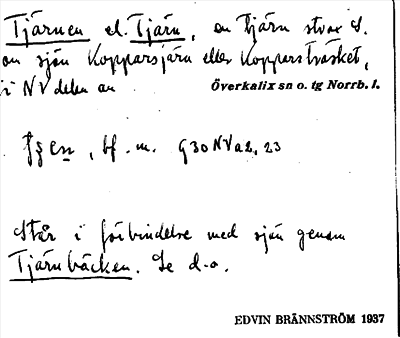 Tjärnen el. Tjärn, en tjärn strax S.
om sjön Kopparsjärn eller Kopparsträsket,
i NV delen av
Överkalix sn o. tg Norrb. l.
en, bf. m. G30NVa2, 23
Står i förbindelse med sjön genom
Tjärnbäcken. Se d.o.
EDVIN BRÄNNSTRÖM 1937